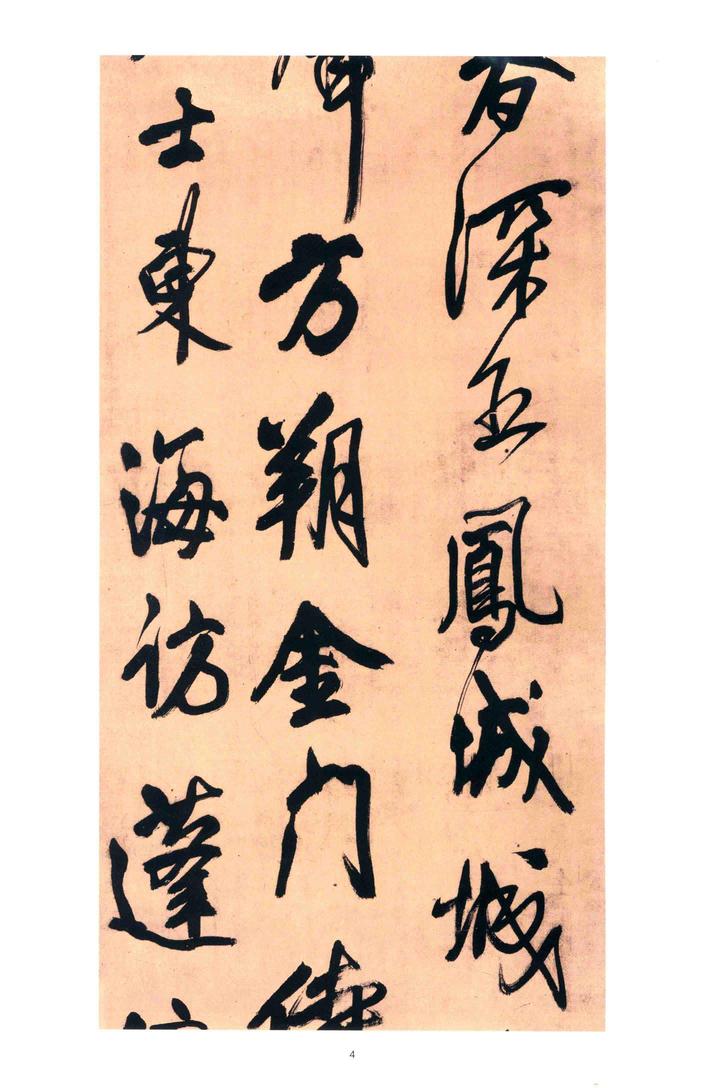 深五鳳城城
方朔金门
士東海訪蓬
4